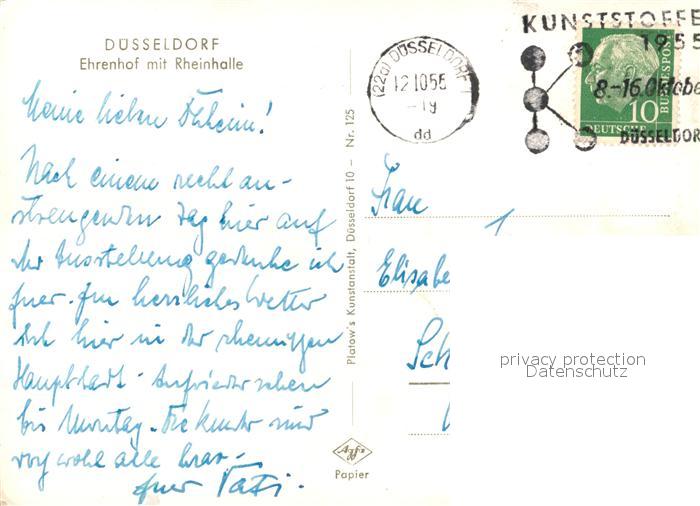 DÜSSELDORF
Ehrenhof mit Rheinhalle
Meine lieben Daheim!
Nach einem recht an-
strengenden Tag hier auf
der Ausstellung gedenke ich
Euer. Ein herrliches Wetter
ist hier in der rheinischen
Hauptstadt. Aufwiedersehen
bis Montag. Die Kinder sind
wohl alle brav.
Euer Vati.
Platow's Kunstanstalt, Düsseldorf 10 - Nr. 125
(22a) DÜSSELDORF 1
12.10.55
-19
dd
KUNSTSTOFFE
1955
8-16. Oktobe
DÜSSELDOR
10
DEUTSCHE
BUNDESPOST
Frau
Elisabe
Sch
Agfa
Papier
privacy protection
Datenschutz